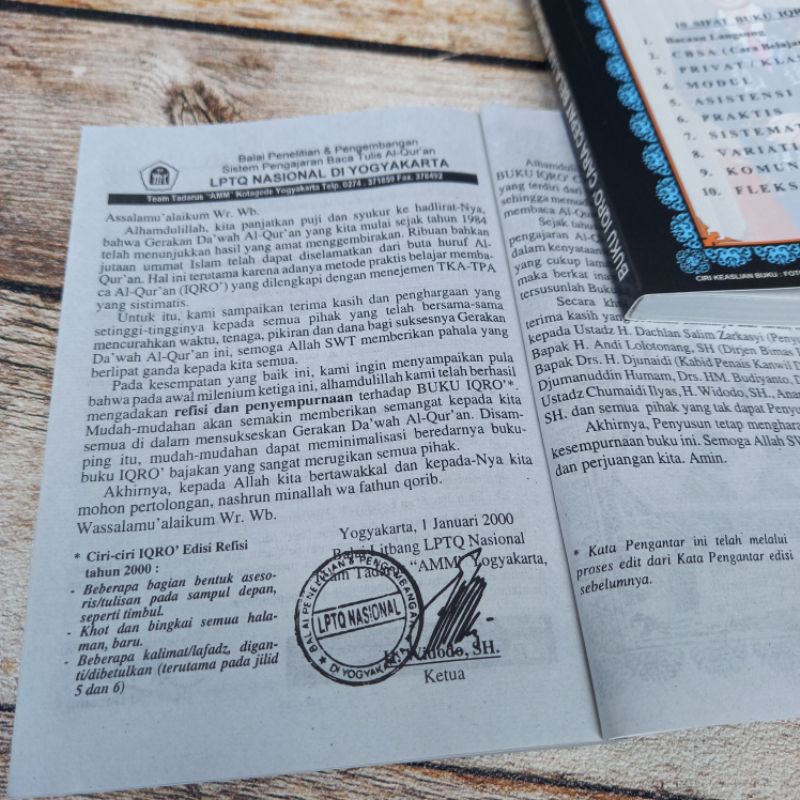 Balai Penelitian & Pengembangan
Sistem Pengajaran Baca Tulis Al-Qur'an
LPTQ NASIONAL DI YOGYAKARTA
Team Tadarus "AMM" Kotagede Yogyakarta Telp. 0274 . 371859 Fax. 378492
Assalamu'alaikum Wr. Wb.
Alhamdulillah, kita panjatkan puji dan syukur ke hadlirat-Nya,
bahwa Gerakan Da'wah Al-Qur'an yang kita mulai sejak tahun 1984
telah menunjukkan hasil yang amat menggembirakan. Ribuan bahkan
jutaan ummat Islam telah dapat diselamatkan dari buta huruf Al-
Qur'an. Hal ini terutama karena adanya metode praktis belajar memba-
ca Al-Qur'an (IQRO') yang dilengkapi dengan menejemen TKA-TPA
yang sistimatis.
Untuk itu, kami sampaikan terima kasih dan penghargaan yang
setinggi-tingginya kepada semua pihak yang telah bersama-sama
mencurahkan waktu, tenaga, pikiran dan dana bagi suksesnya Gerakan
Da'wah Al-Qur'an ini, semoga Allah SWT memberikan pahala yang
berlipat ganda kepada kita semua.
Pada kesempatan yang baik ini, kami ingin menyampaikan pula
bahwa pada awal milenium ketiga ini, alhamdulillah kami telah berhasil
mengadakan refisi dan penyempurnaan terhadap BUKU IQRO'*.
Mudah-mudahan akan semakin memberikan semangat kepada kita
semua di dalam mensukseskan Gerakan Da'wah Al-Qur'an. Disam-
ping itu, mudah-mudahan dapat meminimalisasi beredarnya buku-
buku IQRO' bajakan yang sangat merugikan semua pihak.
Akhirnya, kepada Allah kita bertawakkal dan kepada-Nya kita
mohon pertolongan, nashrun minallah wa fathun qorib.
Wassalamu'alaikum Wr. Wb.
* Ciri-ciri IQRO' Edisi Refisi
tahun 2000 :
- Beberapa bagian bentuk aseso-
ris/tulisan pada sampul depan,
seperti timbul.
- Khot dan bingkai semua hala-
man, baru.
- Beberapa kalimat/lafadz, digan-
ti/dibetulkan (terutama pada jilid
5 dan 6)
Yogyakarta, 1 Januari 2000
Balai Litbang LPTQ Nasional
Team Tadarus "AMM" Yogyakarta,
BALAI PENELITIAN & PENGEMBANGAN
LPTQ NASIONAL
DI YOGYAKARTA
H. Widodo, SH.
Ketua
Alhamdu
BUKU IQRO'
yang terdiri dar
sehingga memu
membaca Al-Qu
Sejak tahu
pengajaran Al-
dalam kenyataan
yang cukup lan
maka berkat ina
tersusunlah Buku
Secara kh
terima kasih yan
kepada Ustadz H. Dachlan Salim Zarkasyi (Peny
Bapak H. Andi Lolotonang, SH (Dirjen Bimas
Bapak Drs. H. Djunaidi (Kabid Penais Kanwil D
Djumanuddin Humam, Drs. HM. Budiyanto, D
Ustadz Chumaidi Ilyas, H. Widodo, SH., Ana
SH. dan semua pihak yang tak dapat Penyu
Akhirnya, Penyusun tetap menghara
kesempurnaan buku ini. Semoga Allah SW
dan perjuangan kita. Amin.
* Kata Pengantar ini telah melalui
proses edit dari Kata Pengantar edisi
sebelumnya.
10 SIFAT BUKU IQR
1. Bacaan Langsung
2. CBSA (Cara Belajar
3. PRIVAT / KLA
4. MODUL
5. ASISTENSI
6. PRAKTIS
7. SISTEMAT
8. VARIATI
9. KOMUN
10. FLEKS
BUKU IQRO' CARA CEPAT BELA
CIRI KEASLIAN BUKU : FOT